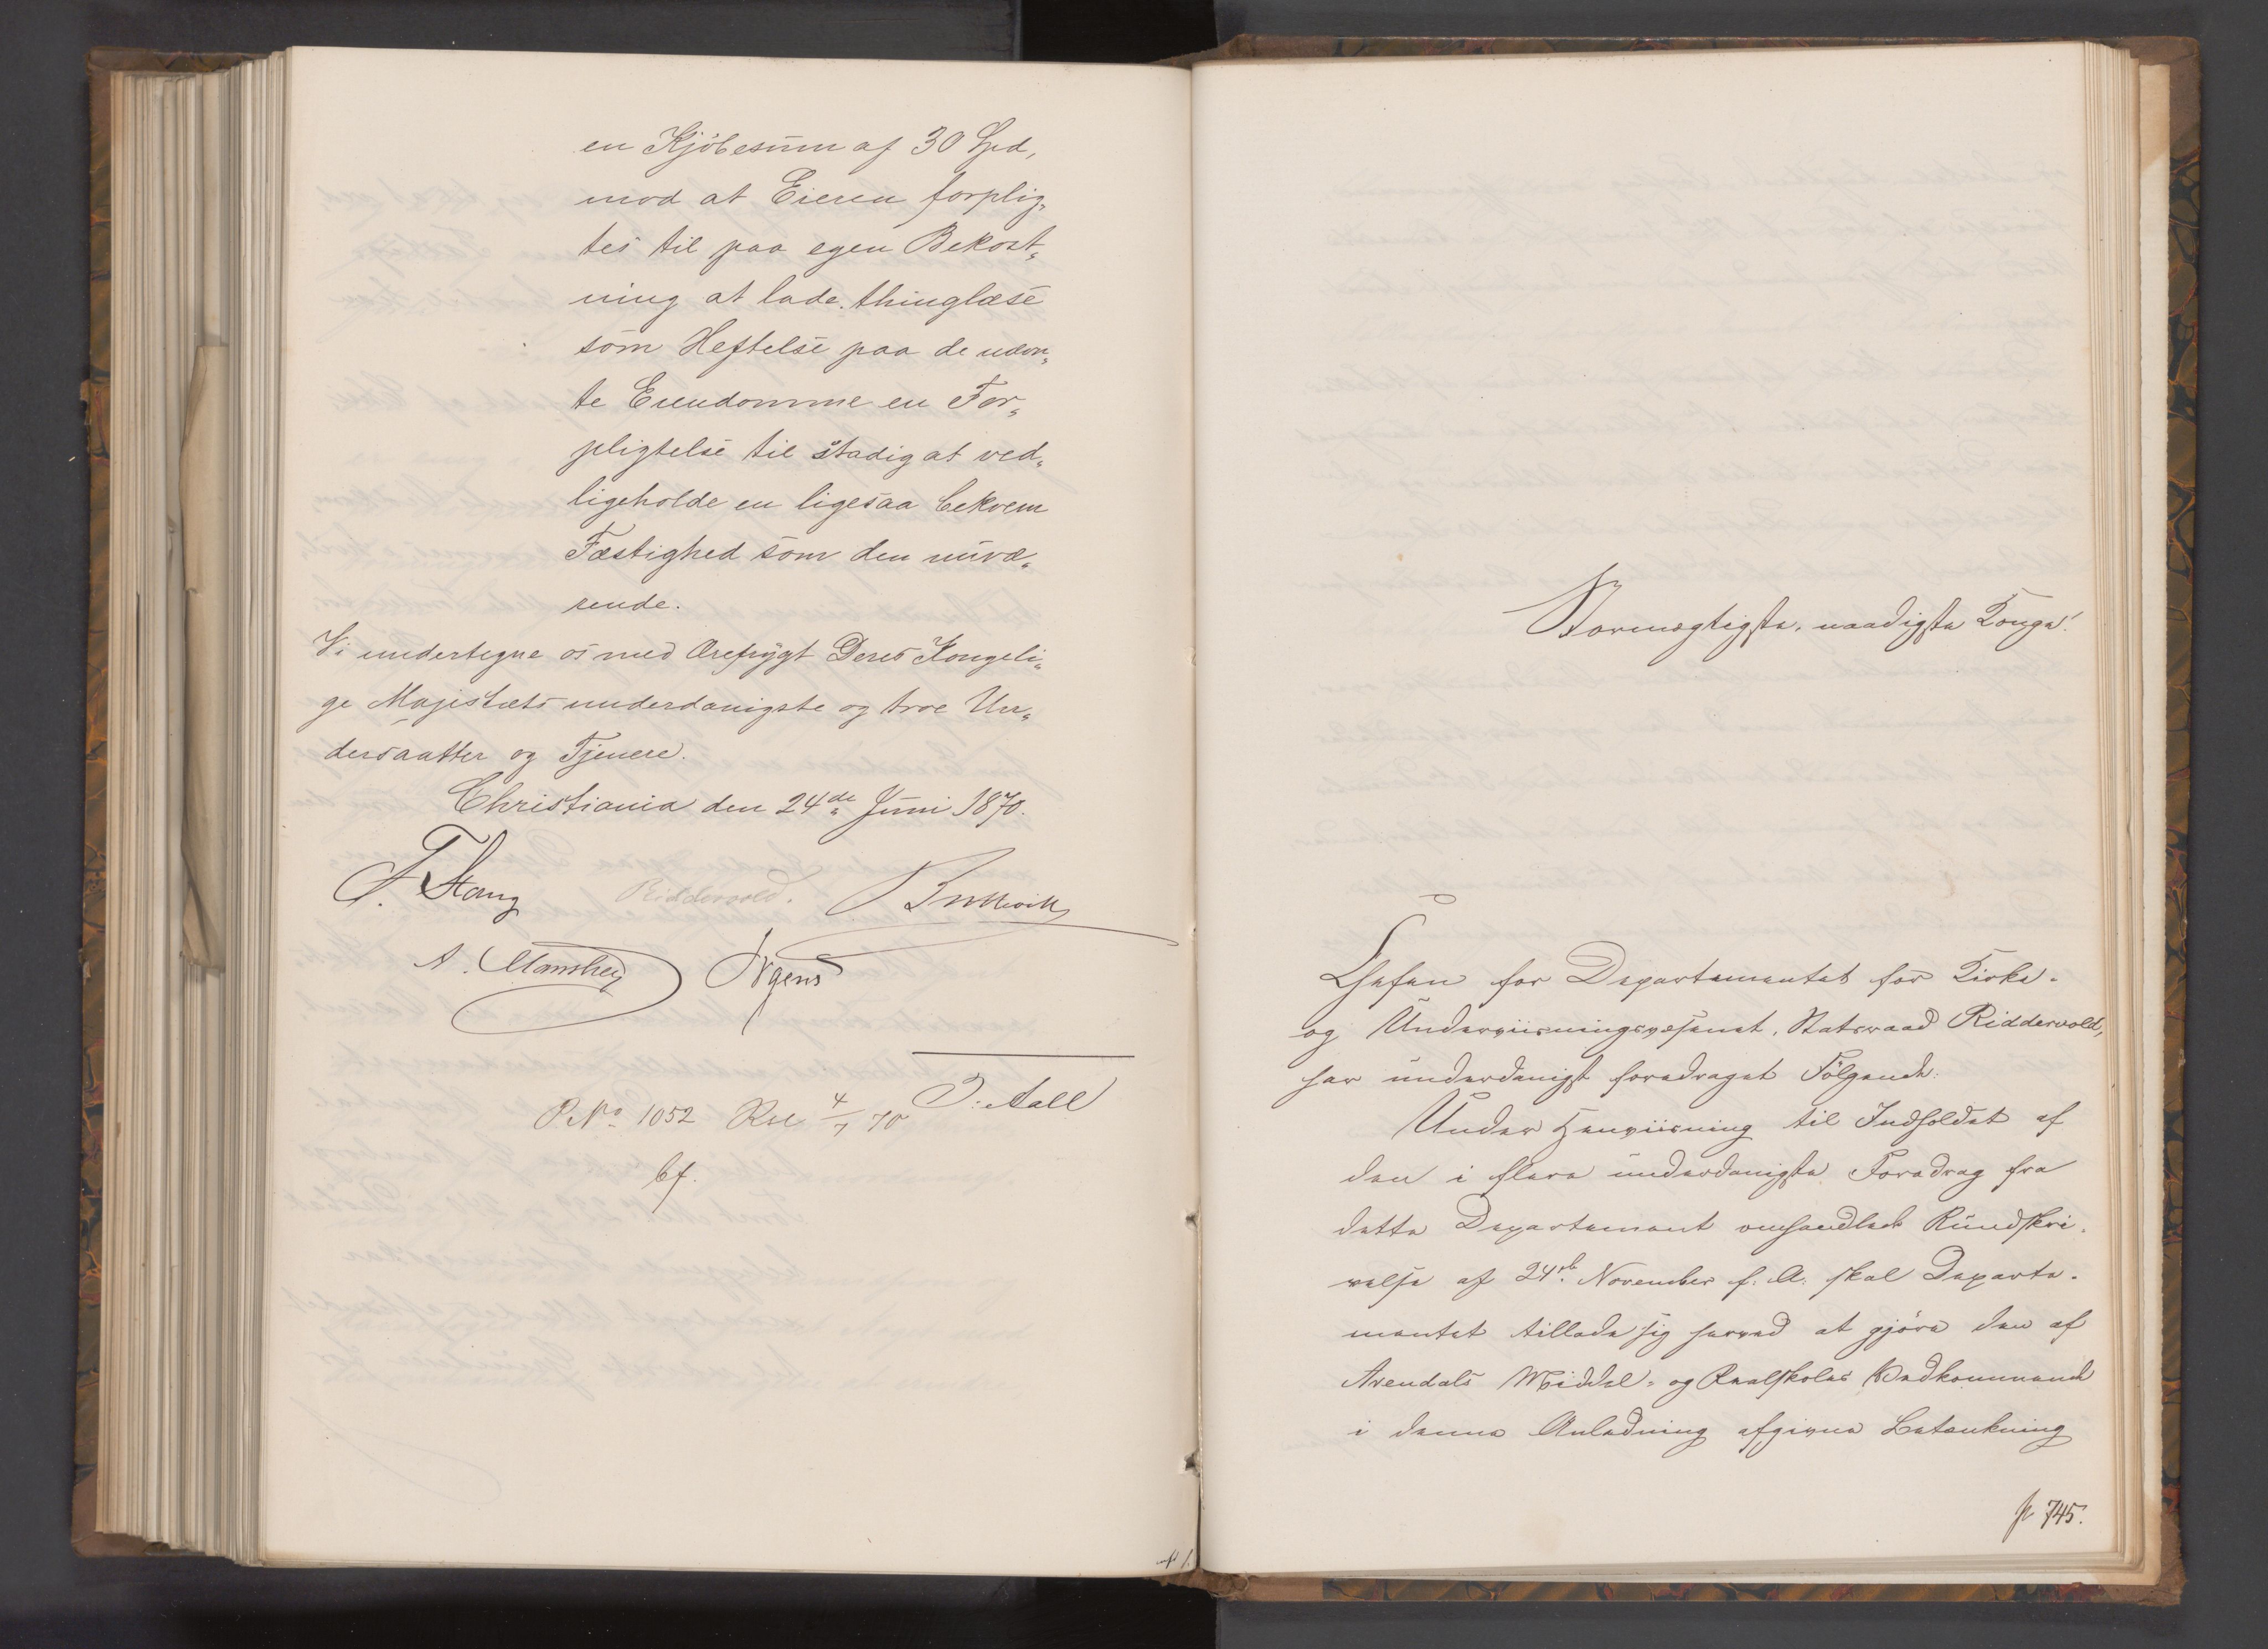 en Kjöbesum af 30 Spd,
mod at Eieren forplig„
tes til paa egen Bekost„
ning at lade thinglæse
som Heftelse paa de nævn„
te Eiendomme en For„
pligtelse til stadig at ved„
ligeholde en ligesaa bekvem
Fæstighed som den nuvæ„
rende.
Vi undertegne os med Ærefrygt Deres Kongeli„
ge Majestæts underdanigste og troe Un„
dersaatter og Tjenere.
Christiania den 24de Juni 1870.
F. Stang Riddervold.
A. Manthey Irgens
J. Aall
P. No 1052 Res 4/7 70
bf.
Stormægtigste, naadigste Konge!
Chefen for Departementet for Kirke-
og Underviisningsvæsenet, Statsraad Riddervold,
har underdanigst foredraget Følgende:
Under Henviisning til Indholdet af
den i flere underdanigste Foredrag fra
dette Departement omhandlede Rundskri-
velse af 24de November f. A. skal Departe-
mentet tillade sig herved at gjøre den af
Arendals Middel- og Realskoles Vedkommende
i denne Anledning afgivne Betænkning
p 745.